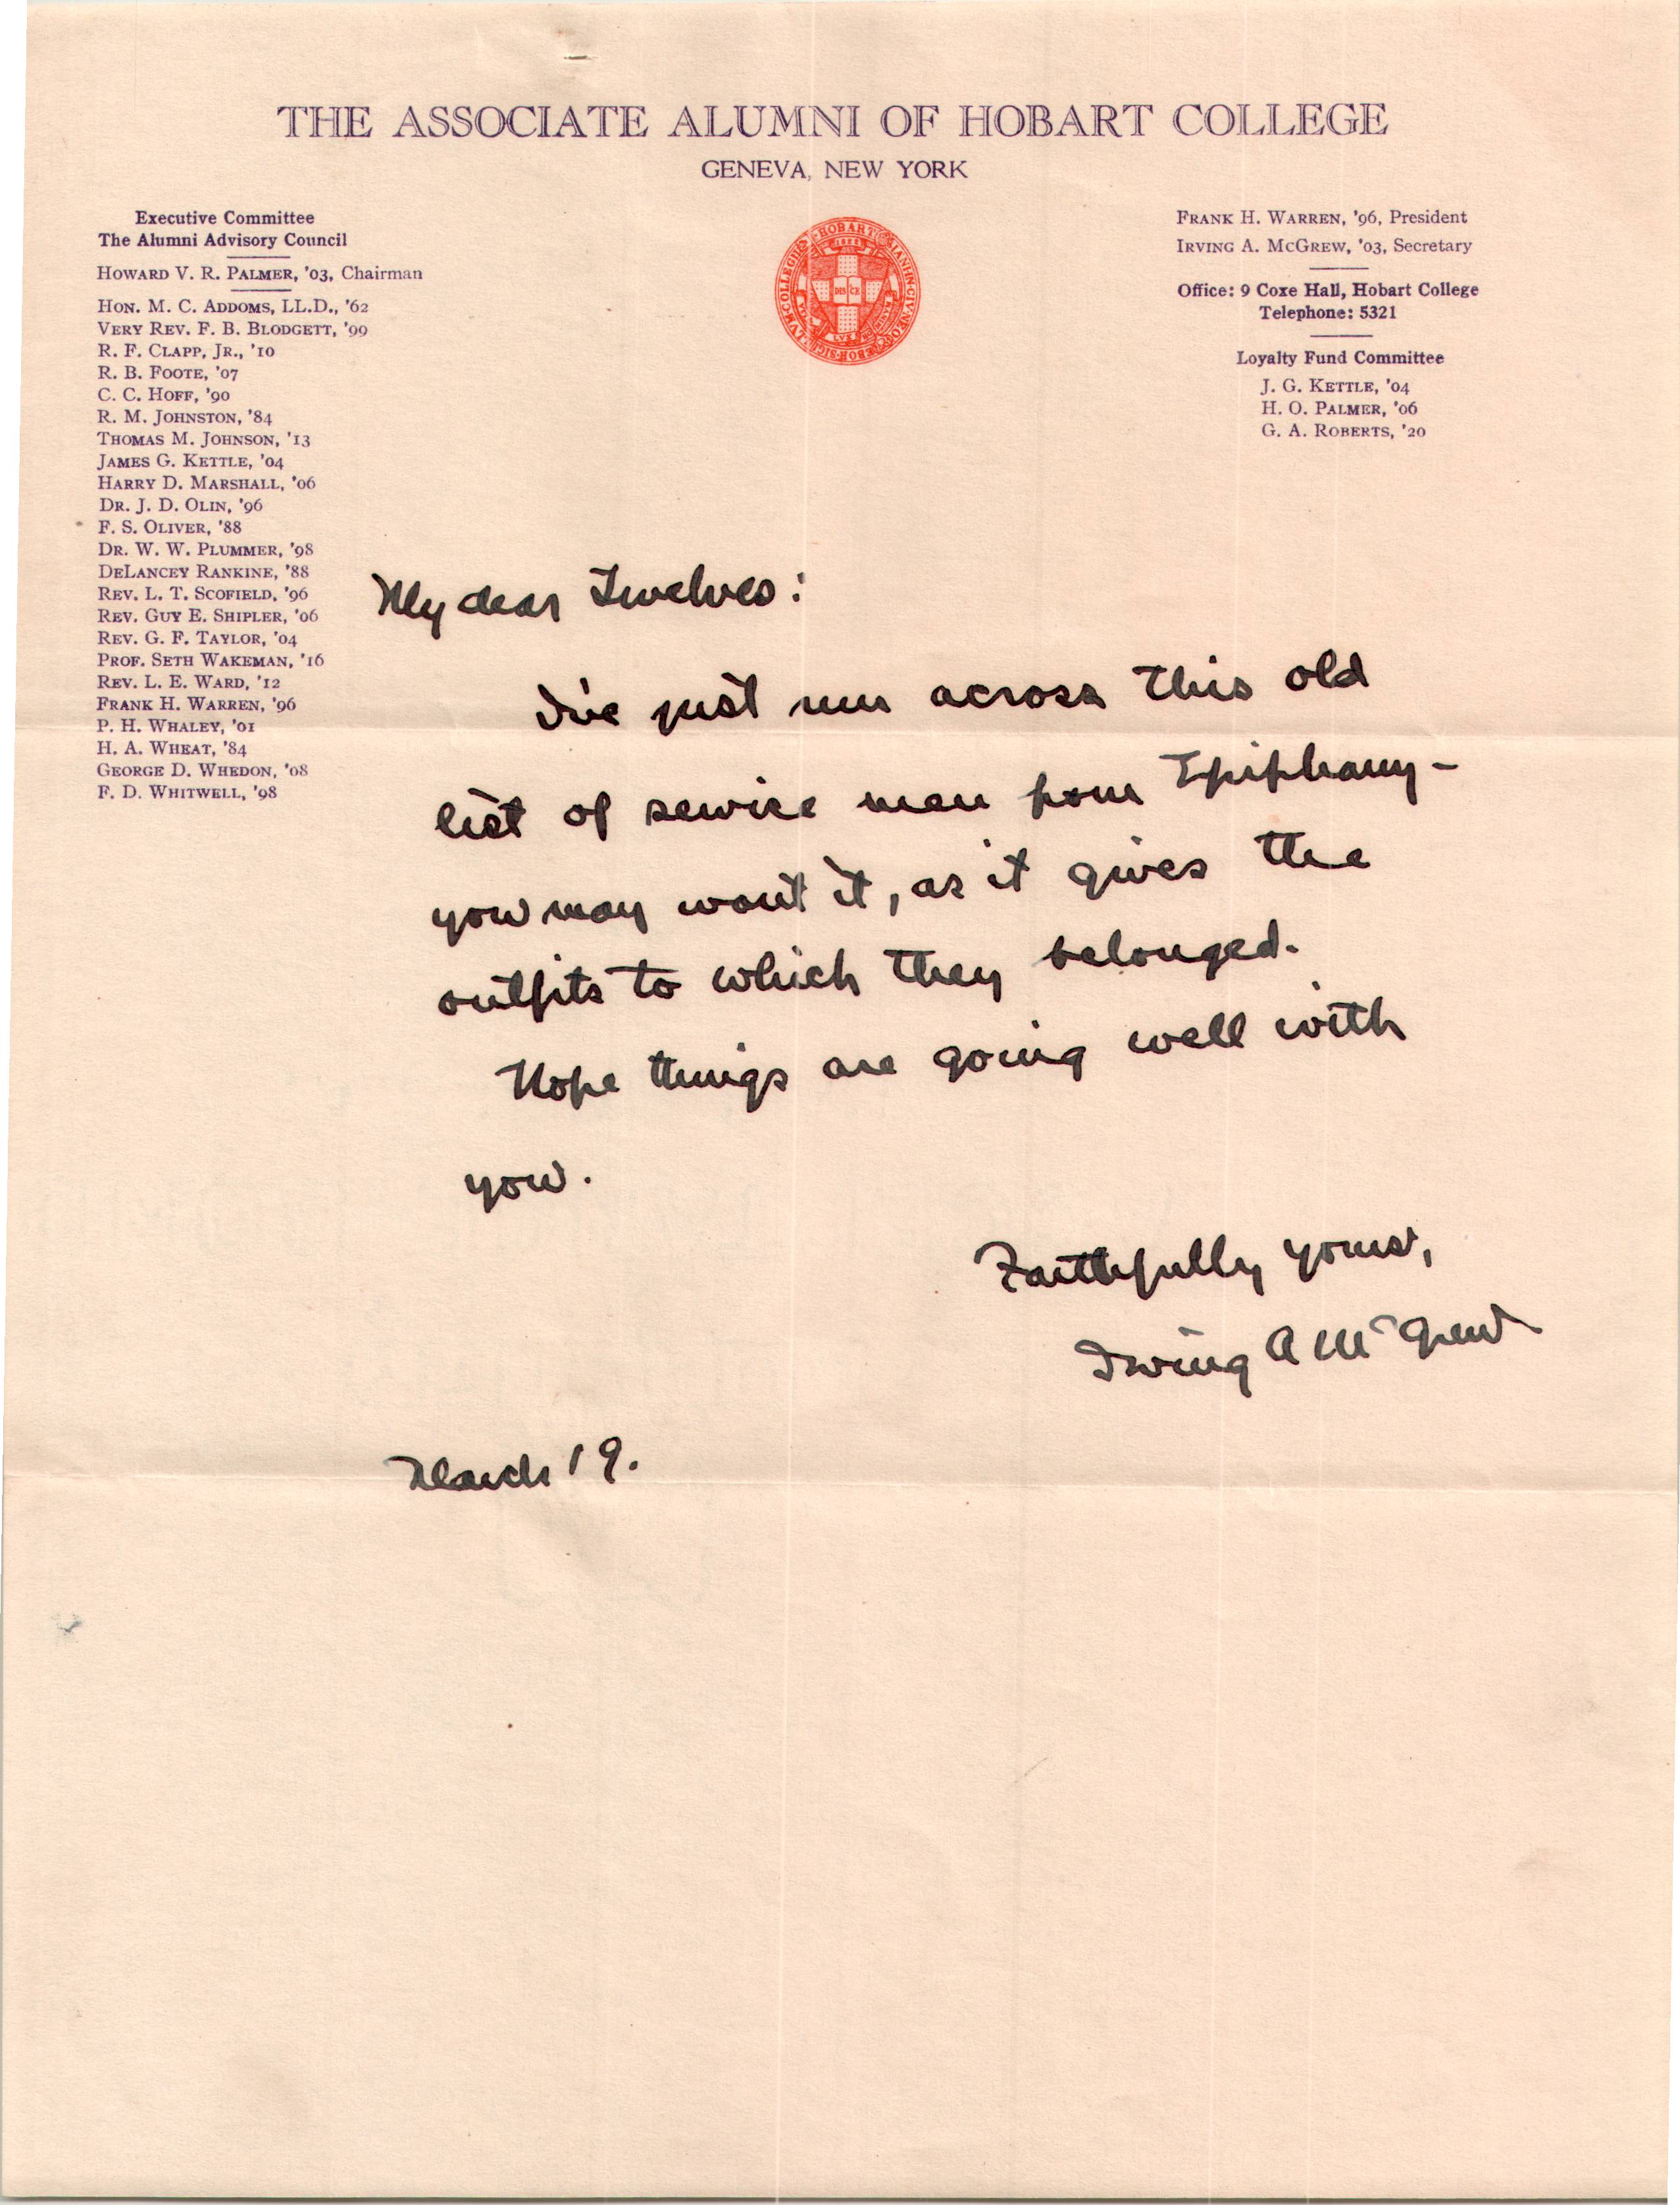 THE ASSOCIATE ALUMNI OF HOBART COLLEGE
GENEVA, NEW YORK
Executive Committee
The Alumni Advisory Council
HOWARD V. R. PALMER, '03, Chairman
HON. M. C. ADDOMS, LL.D., '62
VERY REV. F. B. BLODGETT, '99
R. F. CLAPP, JR., '10
R. B. FOOTE, '07
C. C. HOFF, '90
R. M. JOHNSTON, '84
THOMAS M. JOHNSON, '13
JAMES G. KETTLE, '04
HARRY D. MARSHALL, '06
DR. J. D. OLIN, '96
F. S. OLIVER, '88
DR. W. W. PLUMMER, '98
DELANCEY RANKINE, '88
REV. L. T. SCOFIELD, '96
REV. GUY E. SHIPLER, '06
REV. G. F. TAYLOR, '04
PROF. SETH WAKEMAN, '16
REV. L. E. WARD, '12
FRANK H. WARREN, '96
P. H. WHALEY, '01
H. A. WHEAT, '84
GEORGE D. WHEDON, '08
F. D. WHITWELL, '98
HOBART
DIS CE
FRANK H. WARREN, '96, President
IRVING A. MCGREW, '03, Secretary
Office: 9 Coxe Hall, Hobart College
Telephone: 5321
Loyalty Fund Committee
J. G. KETTLE, '04
H. O. PALMER, '06
G. A. ROBERTS, '20
My dear Twelves:
I've just run across this old
list of service men from Epiphany -
you may want it, as it gives the
outfits to which they belonged.
Hope things are going well with
you.
Faithfully yours,
Irving A McGrew
March 19.